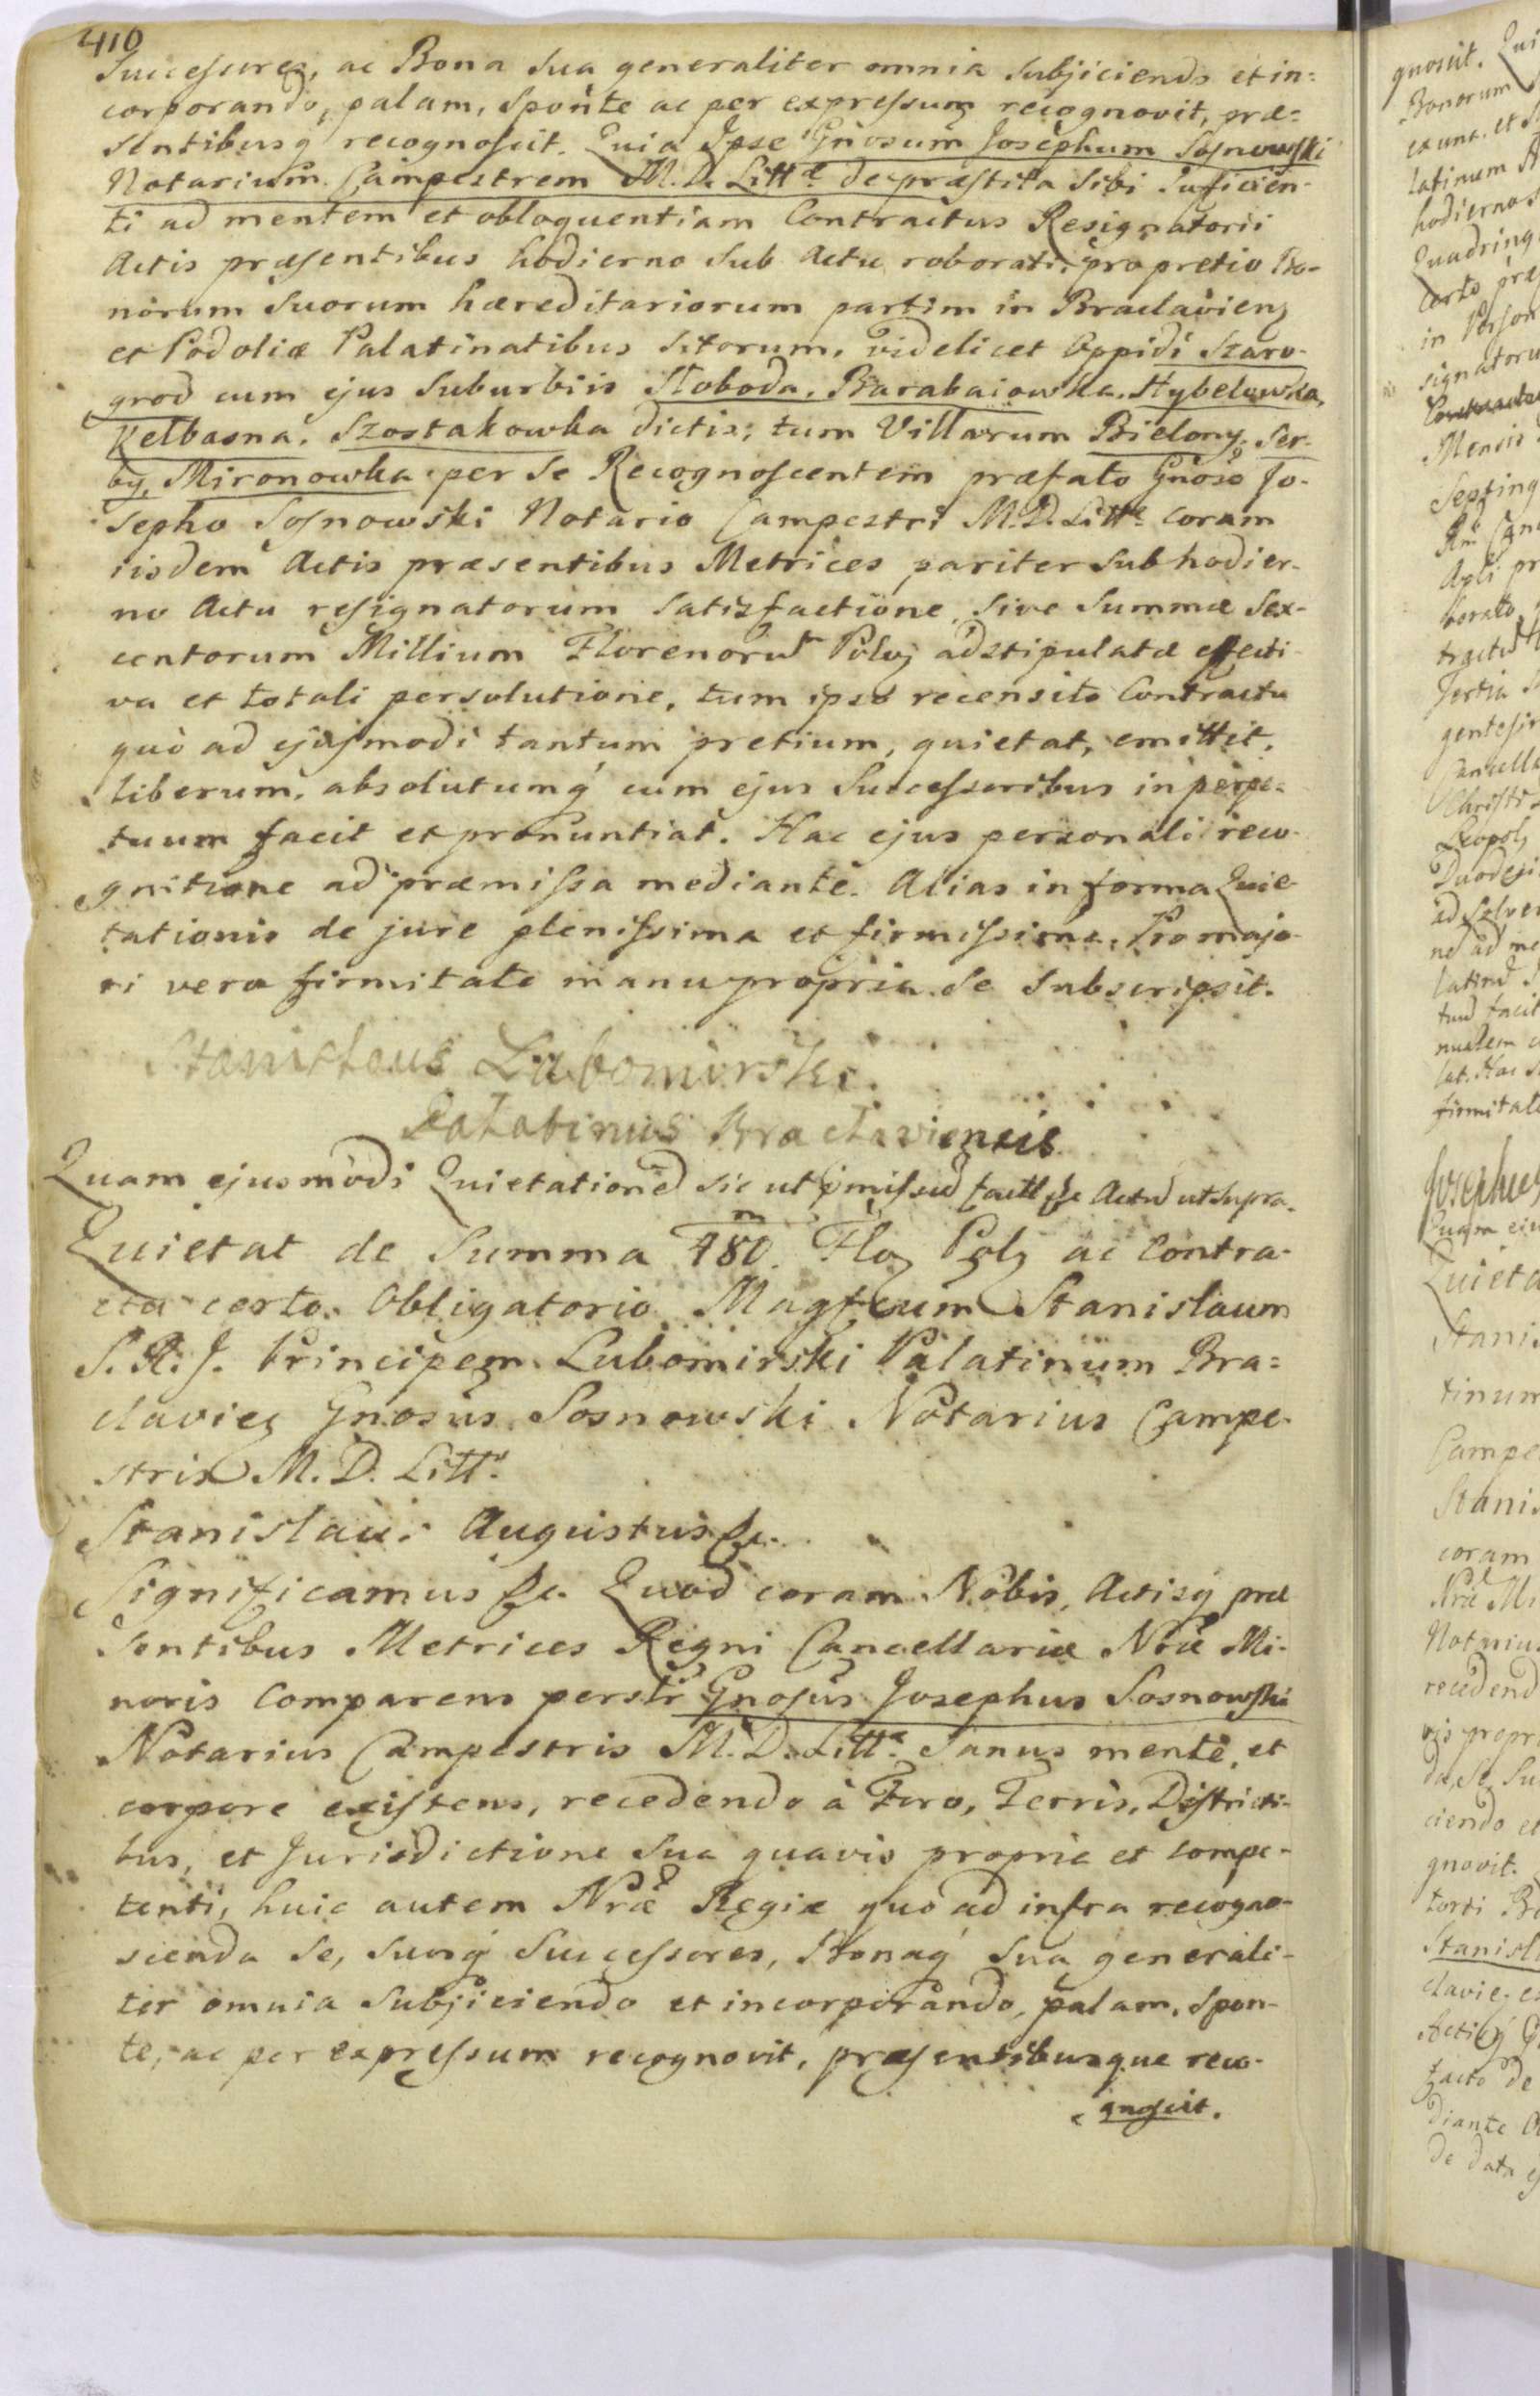 410
Successores, ac Bona sua generaliter omnia subjiciendo et in=
corporando, palam, sponte ac per expressum recognovit, præ=
sentibusq recognoscit. Quia Ipse Gnosum Josephum Sosnowski
Notarium Campestrem M. D. Littæ de præstita sibi sufficien-
ti ad mentem et obloquentiam Contractus Resignatorii
Actis præsentibus hodierno sub Actu roborati, pro pretio Bo-
norum suorum hæreditariorum partim in Braclavien
et Podoliæ Palatinatibus sitorum, videlicet Oppidi Szaro-
grod cum ejus suburbiis Sloboda, Barabaiowka, Hybelowka,
Kelbasna, Szostakowka dictis; tum Villarum Bielony, Ser-
by, Mironowka per se Recognoscentem præfato Gnoso Jo-
sepho Sosnowski Notario Campestri M. D. Littæ coram
iisdem Actis præsentibus Metrices pariter sub hodier-
no Actu resignatorum satisfactione, sive summæ sex-
centorum Millium Florenoru Polo adstipulatæ effecti-
va et totali persolutione, tum ipso recensito Contractu
quò ad ejusmodi tantum pretium, quietat, emittit,
liberum, absolutumq cum ejus Successoribus in perpe-
tuum facit et pronuntiat. Hac ejus personali reco-
gnitione ad præmissa mediante. Alias in forma Quie-
tationis de jure plenissima et firmissima. Pro majo-
ri vero firmitate manu propria se subscripsit.
Stanislaus Lubomirski
Palatinus Braclaviensis
Quam ejusmodi Quietatione sic ut pmissu Actu ut supra.
Quietat de Summa 480 m Flo Pol ac Contra-
ctu certo Obligatorio Magficum Stanislaum
S. R. J. Principem Lubomirski Palatinum Bra=
clavien Gnosus Sosnowski Notarius Campe-
stris M. D. Litt.
Stanislaus Augustus &c.
Significamus &c. Quod coram Nobis, Actisq præ
sentibus Metrices Regni Cancellariæ Nræ Mi-
noris Comparens perstr Gnosus Josephus Sosnowski
Notarius Campestris M. D. Littæ sanus mente, et
corpore existens, recedendo à Foro, Terris, Districti-
bus, et Jurisdictione sua quavis propria et compe-
tenti, huic autem Nræ Regiæ quo ad infra recogno-
scenda se, suosq Successores, Bonaq sua generali-
ter omnia subjiciendo et incorporando, palam, spon-
te, ac per expressum recognovit, præsentibusque reco-
gnoscit.
gnoscit. Qui
Bonorum
ex una, et
latinum
hodiernos
Quadring
certo præ
in Person
signatoru
Mensis
Septing
pr
borato
tractu
Tertia
gentesi
Cancella
Christi
Leopol
Duodeci
ad solven
ne ad me
latinu
tuu facit
firmitate
Josephus
Quam eju
Quieta
Stanis
tinum
Campe
Stanis
coram
Nræ Mi
Notarius
recedend
vis propri
da, se, su
ciendo et
gnovit.
torti
Stanisl
clavie
Actisq
facto de
diante
de data